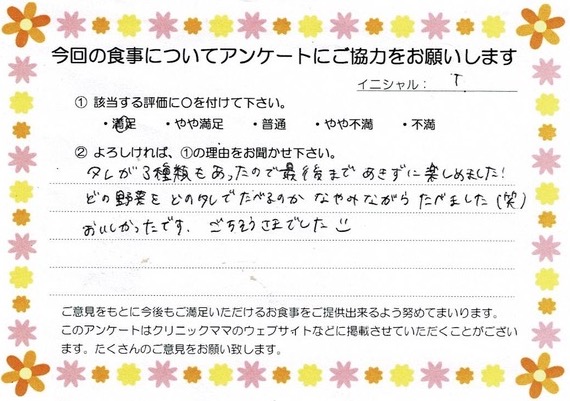 今回の食事についてアンケートにご協力をお願いします
イニシャル： T
① 該当する評価に○を付けて下さい。
・満足 ・やや満足 ・普通 ・やや不満 ・不満
② よろしければ、①の理由をお聞かせ下さい。
タレが3種類もあったので最後まであきずに楽しめました！
どの野菜をどのタレでたべるのかなやみながらたべました(笑)
おいしかったです。ごちそうさまでした
ご意見をもとに今後もご満足いただけるお食事をご提供出来るよう努めてまいります。
このアンケートはクリニックママのウェブサイトなどに掲載させていただくことがござい
ます。たくさんのご意見をお願い致します。